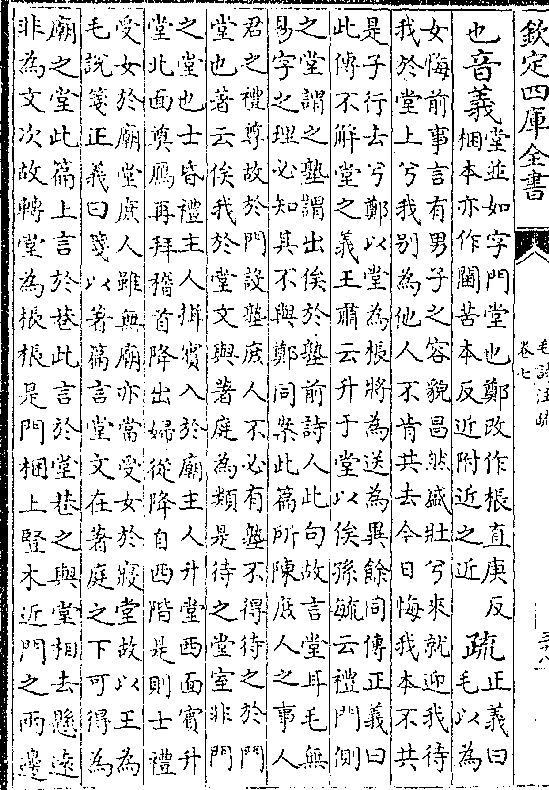 欽定四庫全書
毛詩注疏
卷七
也音義堂並如字門堂也鄭改作棖直庚反
梱本亦作閫苦本反近附近之近
疏正義曰
毛以為
女悔前事言有男子之容貌昌然盛壯兮來就迎我待
我於堂上兮我别為他人不肯共去今日悔我本不共
是子行去兮鄭以堂為棖將為送為異餘同傳正義曰
此傳不解堂之義王肅云升于堂以俟孫毓云禮門側
之堂謂之塾謂出俟於塾前詩人此句故言堂耳毛無
易字之理必知其不與鄭同案此篇所陳庶人之事人
君之禮尊故於門設塾庶人不必有塾不得待之於門
堂也著云俟我於堂文與著庭為類是待之堂室非門
之堂也士昏禮主人揖賓入於廟主人升堂西面賓升
堂北面奠鴈再拜稽首降出婦從降自西階是則士禮
受女於廟堂庶人雖無廟亦當受女於寢堂故以王為
毛說箋正義曰箋以著篇言堂文在著庭之下可得為
廟之堂此篇上言於巷此言於堂巷之與堂相去懸遠
非為文次故轉堂為棖棖是門梱上豎木近門之兩邊